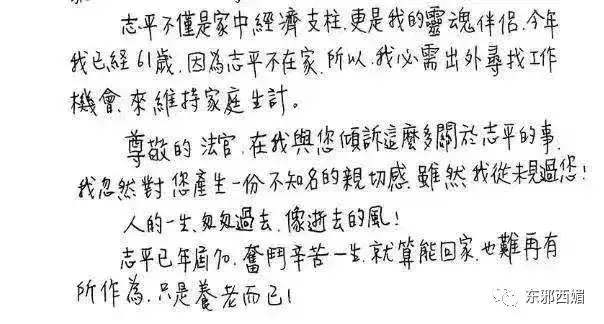 志平不僅是家中經濟支柱,更是我的靈魂伴侶.今年
我已経61歲.因為志平不在家.所以.我必需出外尋找工作
機會.來維持家庭生計。
尊敬的法官.在我與您傾訴這麼多關於志平的事.
我忽然對您產生一份不知名的親切感.雖然我從未見過您!
人的一生.匆匆過去.像逝去的風!
志平已年屆70.奮鬥辛苦一生.就算能回家.也難再有
所作為.只是養老而已!
东邪西媚